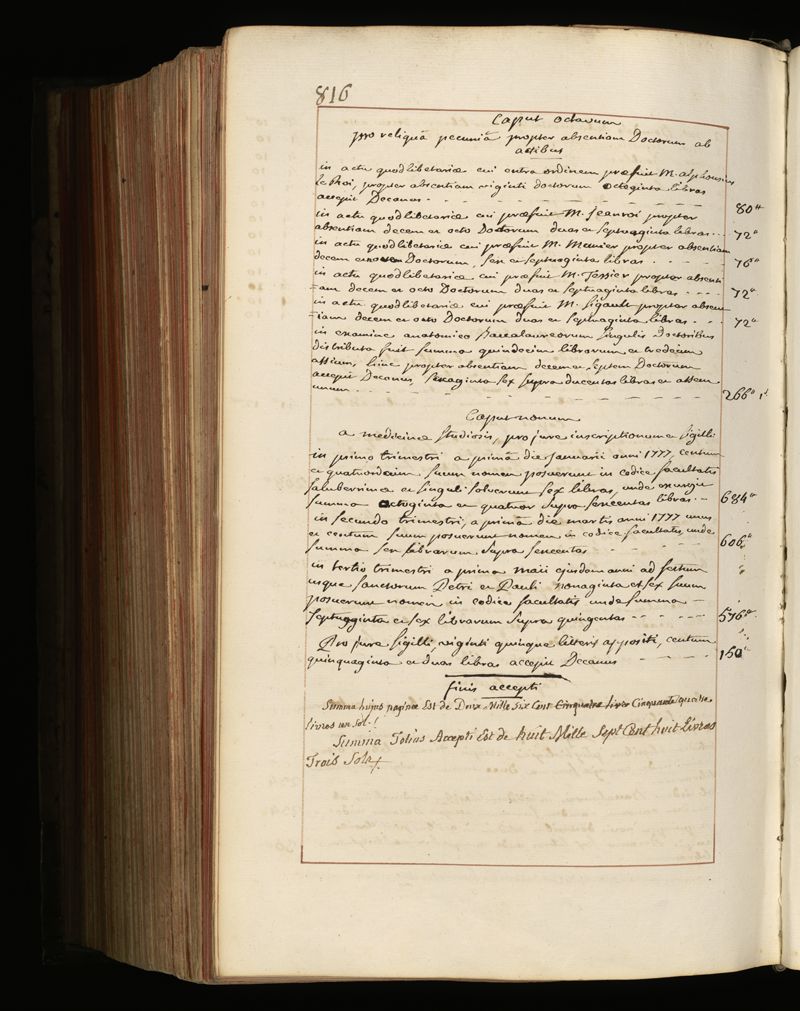 816
Caput octavum
pro reliquâ pecuniâ propter absentiam Doctorum ab
actibus
in actu quodlibetariæ cui extra ordinem præfuit M. alphonsius
le Roi, propter absentiam viginti doctorum octoginta libras
accepit Decanus - - - - 80ᵗᵗ
in actu quodlibetariæ cui præfuit M. Jeanroi propter
absentiam decem et octo Doctorum duas et septuaginta libras - - 72ᵗᵗ
in actu quodlibetariæ cui præfuit M. propter absentiam
decem et novem Doctorum, sex et septuaginta libras - - - 76ᵗᵗ
in actu quodlibetariæ cui præfuit M. Tessier propter absenti
=am decem et octo Doctorum duas et septuaginta libras - - - 72ᵗᵗ
in actu quodlibetariæ cui præfuit M. Sigault propter absen
=tiam decem et octo Doctorum duas et septuaginta libras - - - 72ᵗᵗ
in examine anatomico Baccalaureorum singulis Doctoribus
distributa fuit summa quindecim librarum et tredecim
assium, hinc propter absentiam decem et septem Doctorum
accepit Decanus, sexaginta sex supra ducentas libras et assem
unum - - - - 266ᵗᵗ 1ˢ
Caput nonum
a medicinæ studiosis, pro jure inscriptionum et sigilli
in primo trimestri a primâ die Januarii anni 1777, centum
et quatuordecim suum nomen posuerunt in codice facultatis
saluberrimæ et singuli solverunt sex libras, unde exurgit
summa octoginta et quatuor supra sexcentas libras - - 684ᵗᵗ
in secundo trimestri, a primâ die martis anni 1777 unus
et centum suum posuerunt nomen in codice facultatis, unde
summa sex librarum supra sexcentas - - - - 606ᵗᵗ
in tertio trimestri a prima maii ejusdem anni ad festum
usque sanctorum Petri et Pauli nonaginta et sex suum
posuerunt nomen in codice facultatis unde summa -
septuaginta et sex librarum supra quingentas - - - - - 576ᵗᵗ
Pro jure sigilli viginti quinque litteris appositi, centum
quinquaginta et duas libras accepit Decanus - - - - 150ᵗᵗ
finis accepti
Summa hujus paginæ Est de Deux Mille Six Cent Cinquante livres Cinquante quatre
livres un sol./
Summa Totius Accepti Est de huit Mille Sept Cent huit Livres
Trois Sols